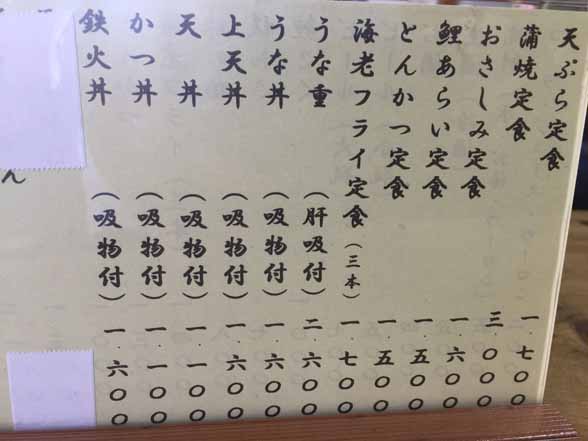 天ぷら定食 一.七〇〇
蒲焼定食 三.〇〇〇
おさしみ定食 一.六〇〇
鯉あらい定食 一.五〇〇
とんかつ定食 一.五〇〇
海老フライ定食(三本) 一.七〇〇
うな重(肝吸付) 二.六〇〇
うな丼(吸物付) 一.六〇〇
上天丼(吸物付) 一.六〇〇
天丼(吸物付) 一.一〇〇
かつ丼(吸物付) 一.一〇〇
鉄火丼(吸物付) 一.六〇〇
ん